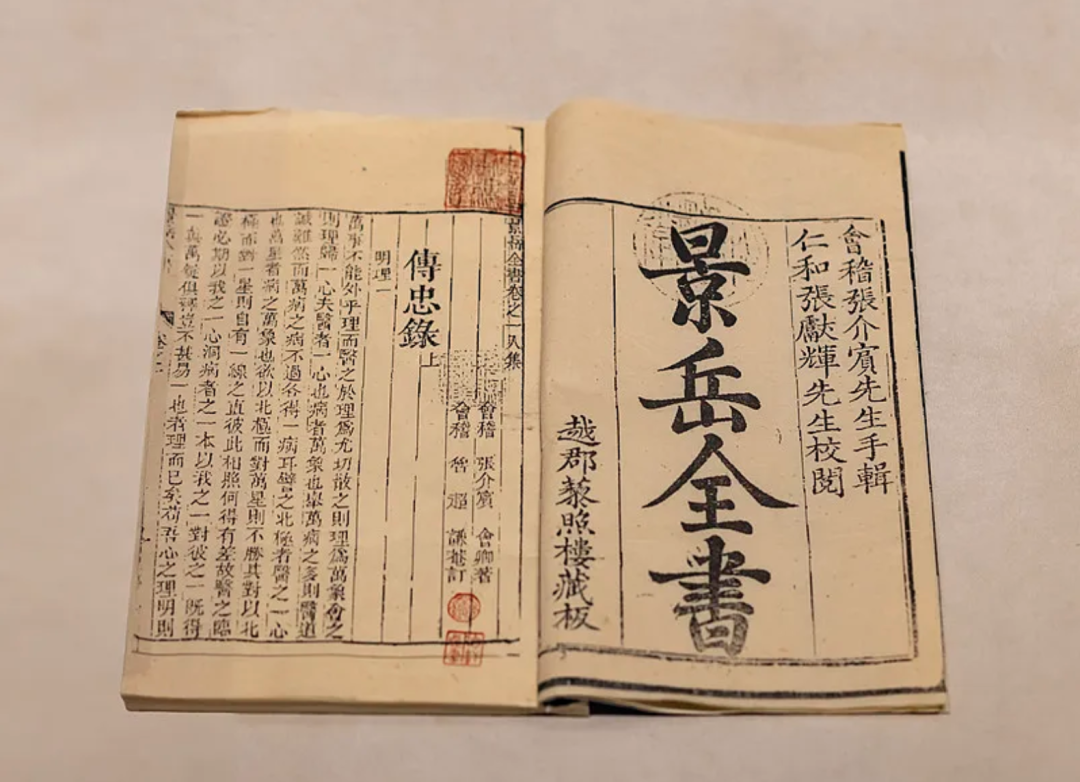 會稽張介賓先生手輯
仁和張獻輝先生校閱
景岳全書
越郡藜照樓藏板
景岳全書卷之一入集
會稽 張介賓 會卿著
會稽 魯 超 謙菴訂
傳忠錄 上
明理一
萬事不能外乎理而醫之於理爲尤切散之則理爲萬象會之
則理歸一心夫醫者一心也病者萬象也舉萬病之多則醫道
誠難然而萬病之病不過各得一病耳譬之北極者醫之一心
也萬星者病之萬象也欲以北極而對萬星則不勝其對以北
極而對一星則自有一線之直彼此相照何得有差故醫之臨
證必期以我之一心洞病者之一本以我之一對彼之一既得
一真萬疑俱釋豈不甚易一也者理而已矣苟吾心之理明則
卷之一